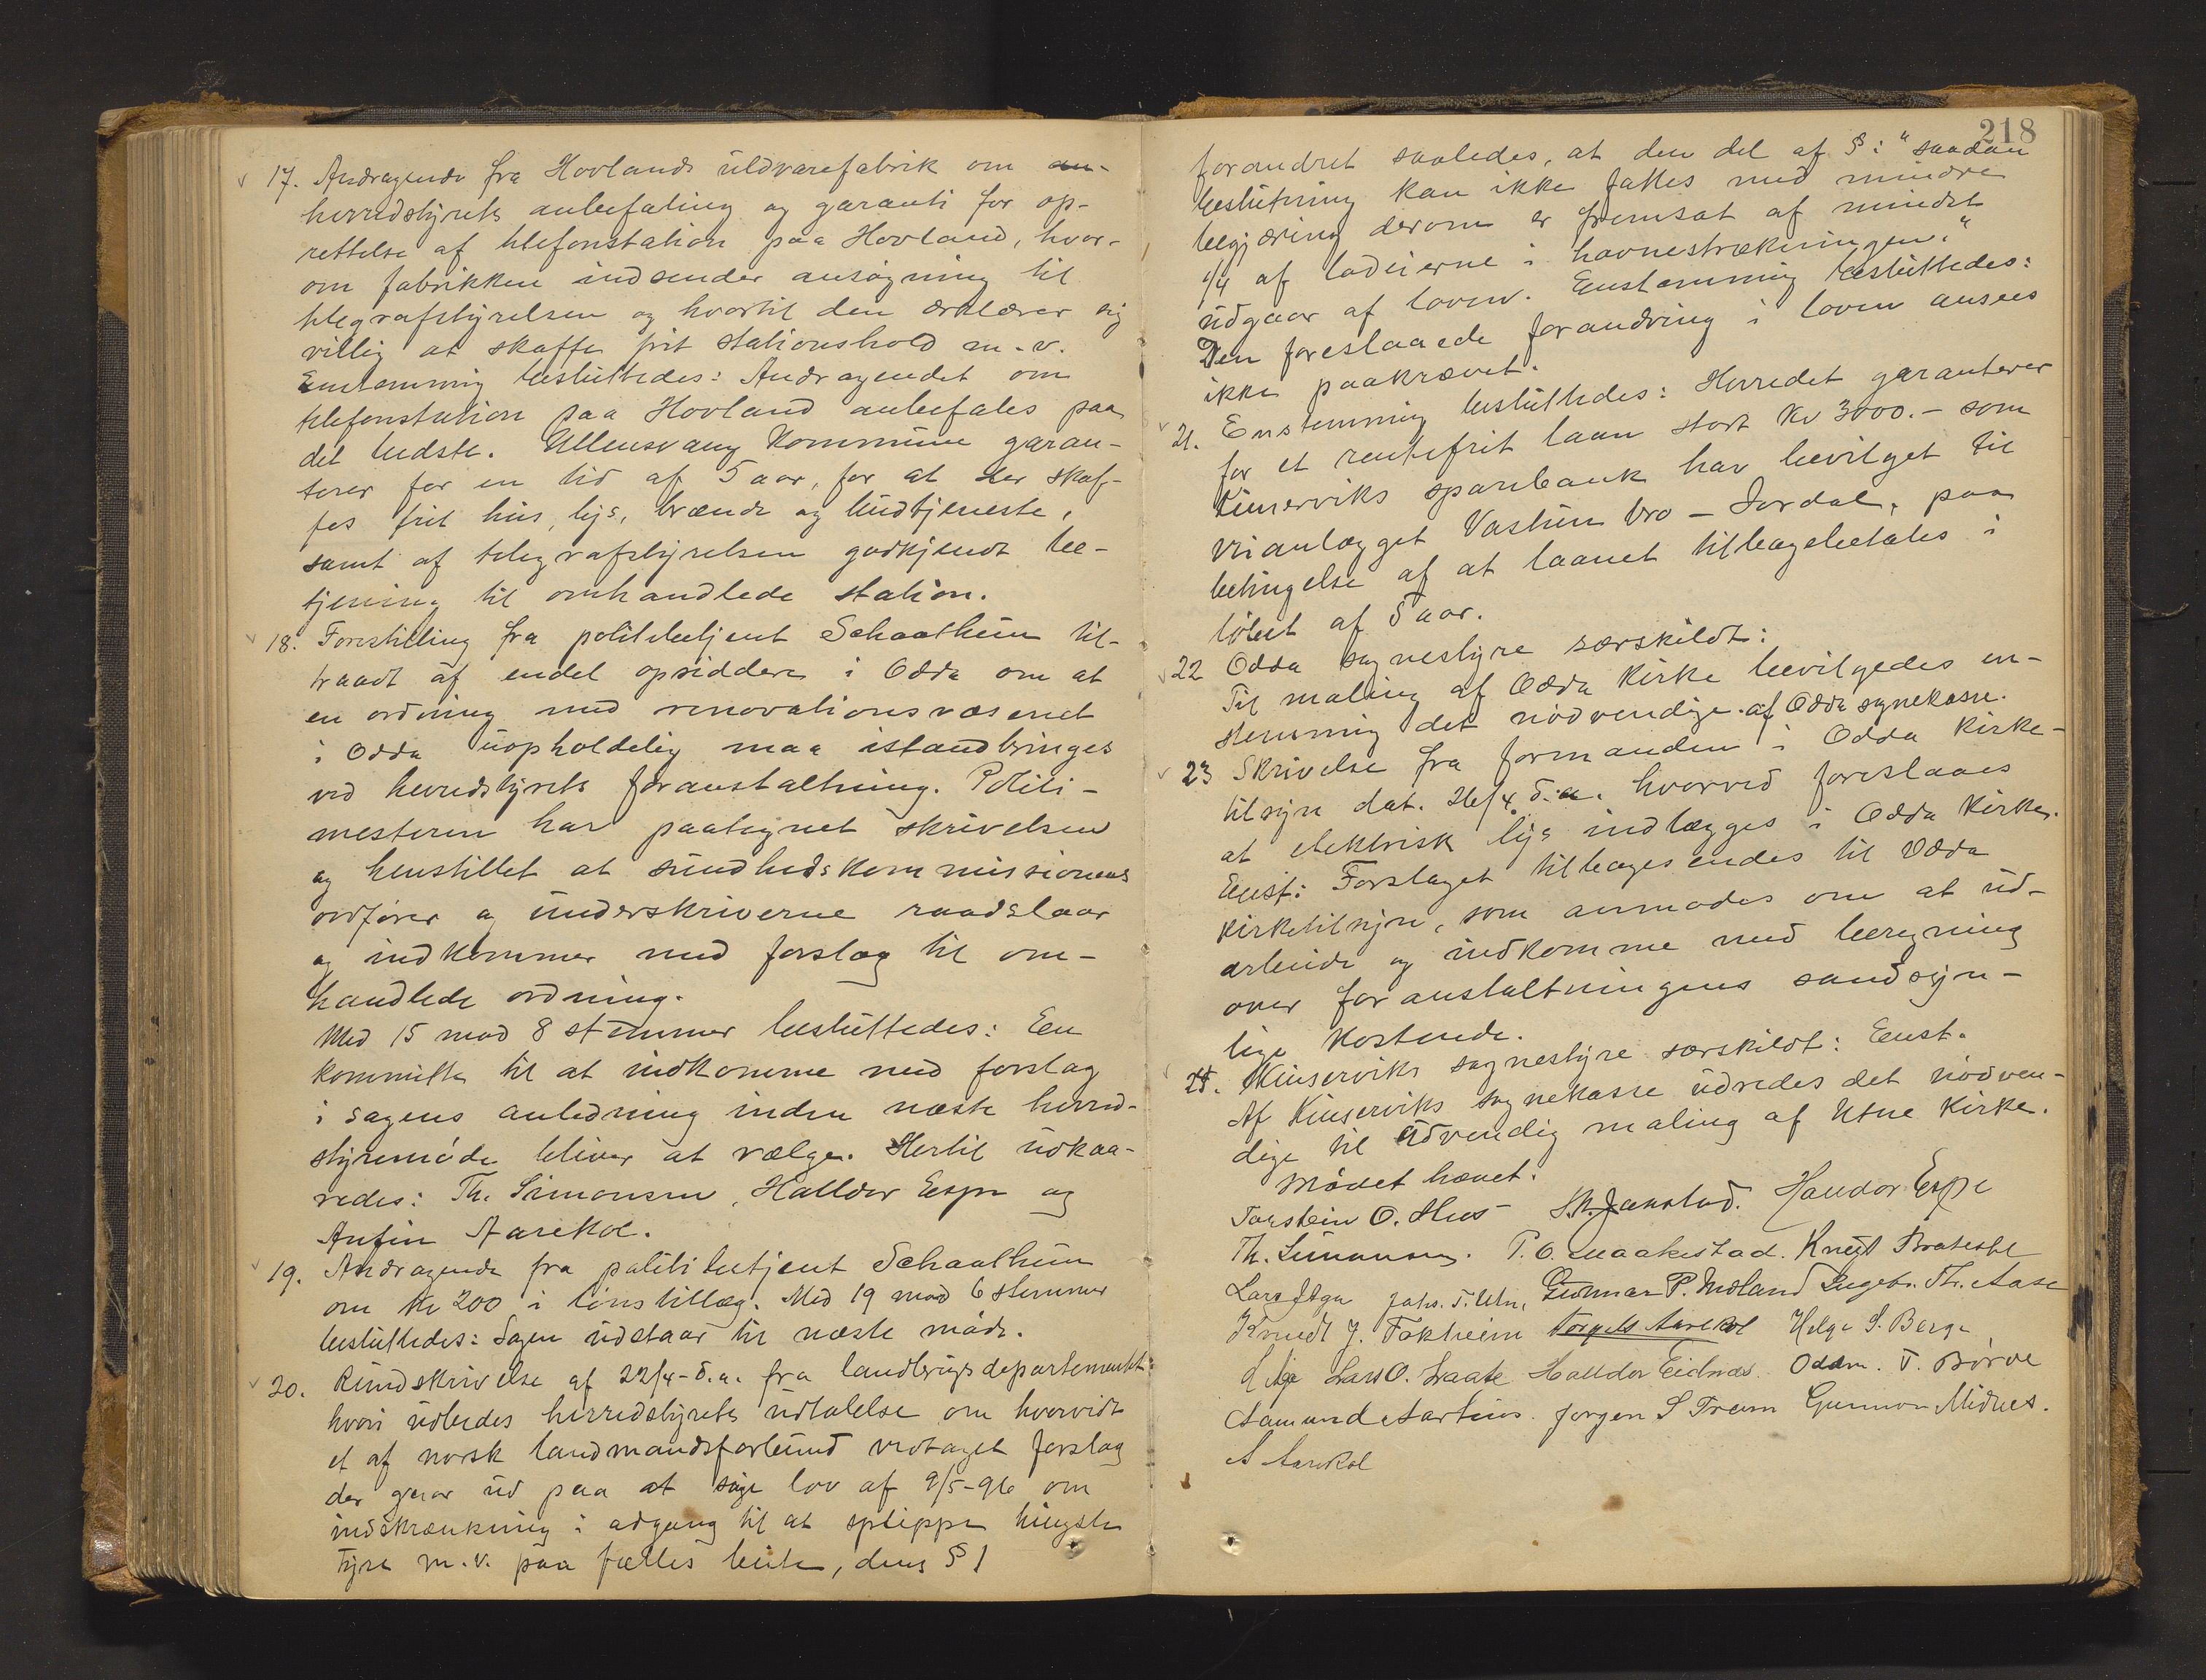 17. Andragende fra Hovlands uldvarefabrik om an-
herredstyrets anbefaling og garanti for op-
rettelse af telefonstation paa Hovland, hvor-
om fabrikken indsender ansøgning til
telegrafstyrelsen og hvortil den erklærer sig
villig at skaffe frit stationshold m.v.
Enstemmig besluttedes: Andragendet om
telefonstation paa Hovland anbefales paa
det bedste. Ullensvang kommune garan-
terer for en tid af 5 aar, for at der skaf-
fes frit hus, lys, brænde og budtjeneste,
samt af telegrafstyrelsen godkjendt be-
tjening til omhandlede station.
18. Forestilling fra politibetjent Schaathun til-
traadt af endel opsiddere i Odda om at
en ordning med renovationsvæsenet
i Odda uopholdelig maa istandbringes
ved herredstyrets foranstaltning. Politi-
mesteren har paategnet skrivelsen
og henstillet at sundhedskommissionens
ordfører og underskriverne raadslaar
og indkommer med forslag til om-
handlede ordning.
Med 15 mod 8 stemmer besluttedes: En
kommitte til at indkomme med forslag
i sagens anledning inden næste herred-
styremøde bliver at vælge. Hertil udkaa-
redes: Th. Simonsen, Halldor Espe og
Anfin Aarekol.
19. Andragende fra politibetjent Schaathun
om kr 200 i lønstillæg. Med 19 mod 6 stemmer
besluttedes: Sagen udstaar til næste møde.
20. Rundskrivelse af 22/4 d.a. fra landbrugsdepartementet
hvori udbedes herredstyrets udtalelse om hvorvidt
et af norsk landmandsforbund vedtaget forslag
der gaar ud paa at søge lov af 9/5-96 om
indskrænkning i adgang til at slippe hingste
tyre m.v. paa fælles beite, dens § 1
218
forandret saaledes, at den del af §: "saadan
beslutning kan ikke fattes med mindre
begjæring derom er fremsat af mindst
1/4 af lodeierne i havnestrækningen."
udgaar af loven. Enstemmig besluttedes:
Den foreslaaede forandring i loven ansees
ikke paakrævet.
21. Enstemmig besluttedes: Herredet garanterer
for et rentefrit laan stort kr 3000.- som
Kinserviks sparebank har bevilget til
veianlægget Vastun bro - Jordal, paa
betingelse af at laanet tilbagebetales i
løbet af 5 aar.
22 Odda sognestyre særskildt:
Til maling af Odda kirke bevilgedes en-
stemmig det nødvendige af Odda sognekasse.
23 Skrivelse fra formanden i Odda kirke-
tilsyn dat. 26/4 d.a. hvorved foreslaaes
at elektrisk lys indlægges i Odda kirke.
Enst: Forslaget tilbagesendes til Odda
kirketilsyn, som anmodes om at ud-
arbeide og indkomme med beregning
over foranstaltningens sandsyn-
lige kostende.
24. Kinserviks sognestyre særskildt: Enst.
Af Kinserviks sognekasse udredes det nødven-
dige til udvendig maling af Utne kirke.
Mødet hævet.
Torstein O. Hus S. K. Jaastad. Haldor Espe
Th. Simonsen. P. O. Maakestad. Knut Bratebøl
Lars Aga Johs. T. Utne, Gunnar P. Midland Ingebr. Th. Aase
Knudt J. Tokheim Torgels Aarekol Helge S. Berge
Lars O. Kraate Halldor Eidnes. Oddm. T. Børve
Aamund Aartun. Jørgen S Freim Gunnar Midnes.
A Aarekol